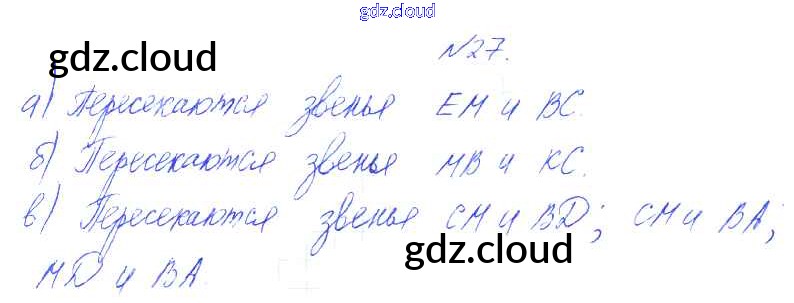 gdz.cloud
№27.
gdz.cloud
а) Пересекаются звенья ЕМ и ВС.
б) Пересекаются звенья МВ и КС.
в) Пересекаются звенья СМ и ВD; СМ и ВА;
gdz.cloud
МD и ВА.